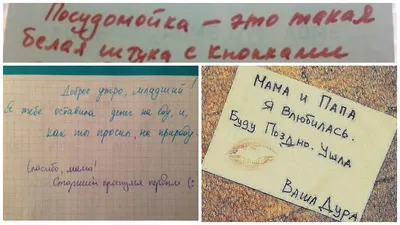 Посудомойка – это такая
белая штука с кнопками
Доброе утро, младший!
Я тебе оставила денег на еду, и,
как ты просил, на природу
Спасибо, мам!
Старший проснулся первым (:
Мама и Папа
Я Влюбилась.
Буду Поздно. Ушла
Ваша Дура